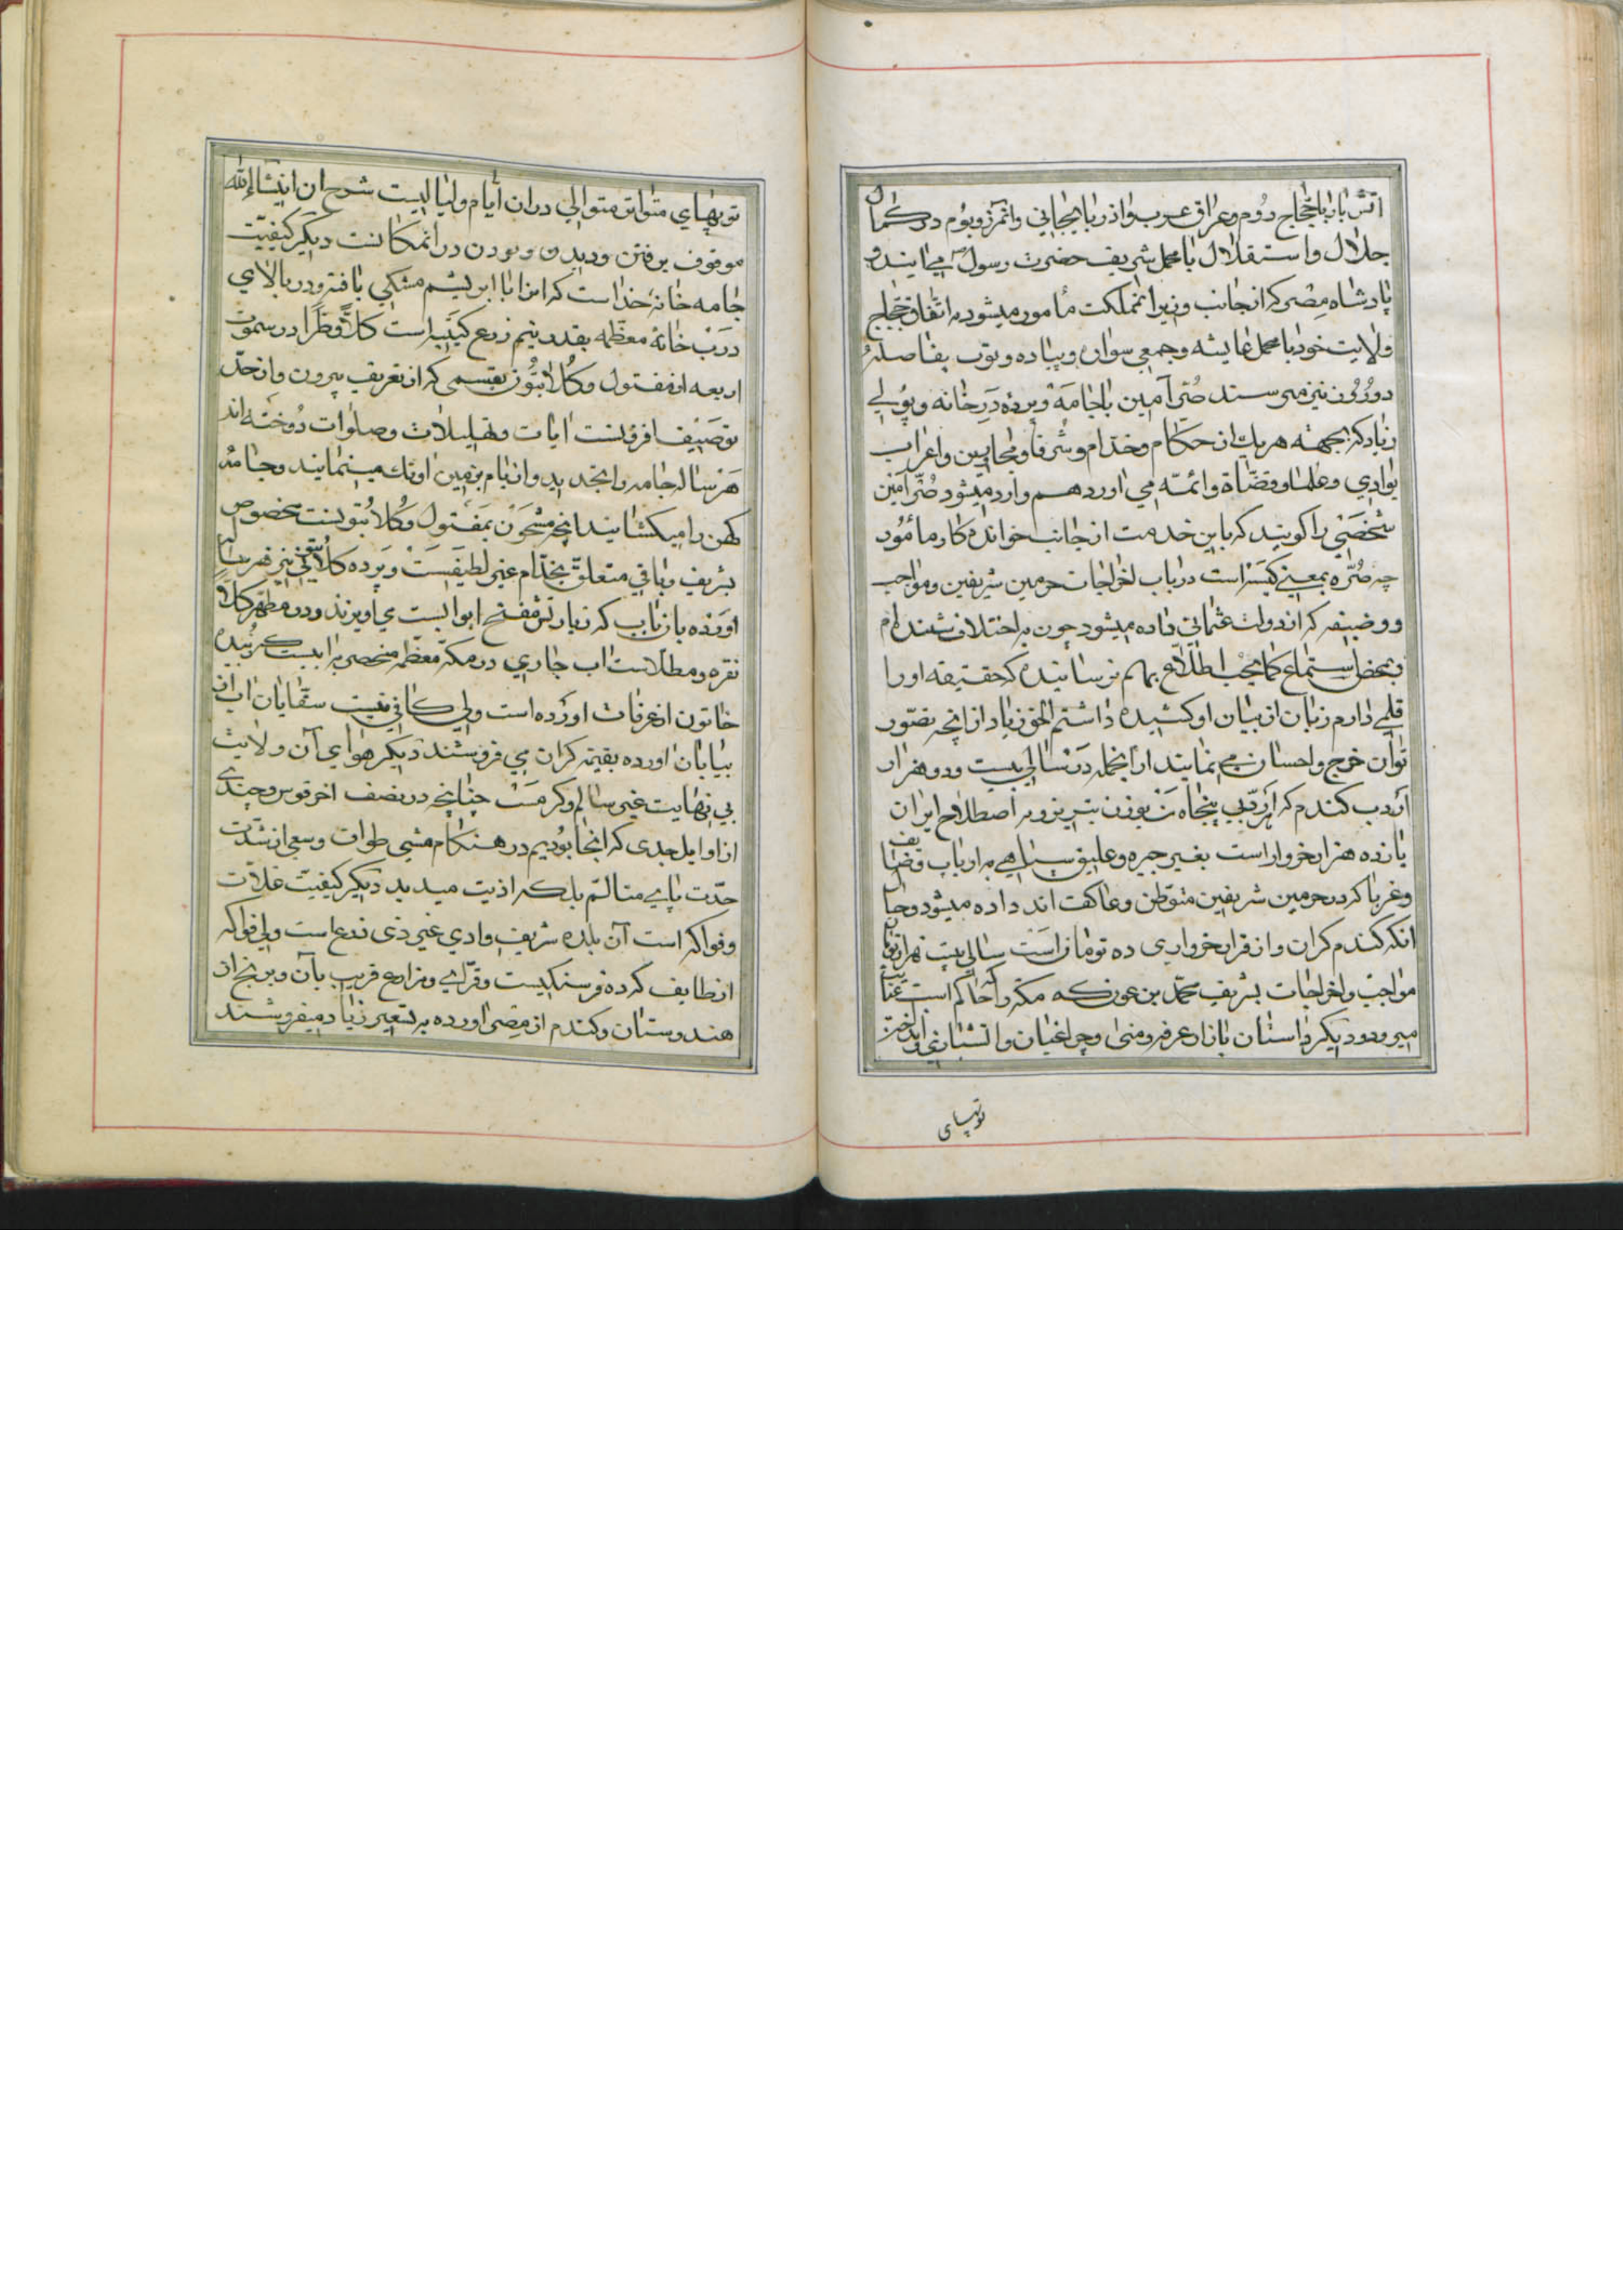 اتش باز با حجاج روم و عراق عرب و اذربایجانی و انمرز و بوم در کمال
جلال و استقلال با محمل شریف حضرت رسول می ایند و
پادشاه مصر که از جانب وزیر انمملکت مأمور میشود به اتفاق حجاج
ولایت خود با محمل عایشه و جمعی سواره و پیاده و توپ بفاصله
دو روز نیز میرسند صُرّه آمین با جامه و پرده دَرِ خانه و پولی
زیاد که بجهته هر یك از حکام و خدام و شرفا و مجاورین و اعراب
بوادی و علما و قضاة و ائمّه می اورد هم وارد میشود صُرّه آمین
شخصی را کویند که باین خدمت از جانب خواندکار مأمور
چه صُرّه بمعنی کیسه است در باب اخراجات حرمین شریفین و مواجب
و وضیفه که از دولت عثمانی داده میشود چون به اختلاف شنیده ام
و بمحض استماع کما یجب اطلاع بهم نرسانیده که حقیقه او را
قلمی دارم زبان از بیان او کشیده داشتم الحق زیاد از انچه تصور
توان خرج و احسان می نمایند از انجمله در سالی بیست و دو هزار
اردب کندم که اردبی پنجاه من بوزن تبریز و به اصطلاح ایران
یازده هزار خروار است بغیر جیره و علیق سپاهی به ارباب وضایف
و غربا که در حرمین شریفین متوطن و عاکف اند داده میشود و حال
انکه کندم کران و از قرار خرواری ده تومان است سالی بیست هزار تومان
مواجب و اخراجات بشریف محمد بن عون که مکه را حاکم است عنایت
میرود دیکر داستان بازار عرفه و منی و چراغبان و اتشبازی و انداختن
توپهای
توپهای متواتر متوالی در ان أیام و لیالیست شرح ان انشاءالله
موقوف برفتن و دیدن و بودن در انمکانست دیکر کیفیّت
جامه خانه خداست که انرا با ابریشم مشکی بافته و در بالای
درب خانهٔ معظمه بقدر نیم زرع کتیبه است کلاً و طرّا در سموت
اربعه از مفتول و کلابتون بقسمی که از تعریف بیرون و از حدّ
توصیف افزونست ایات و تهلیلات و صلوات دوخته اند
هر ساله جامه را تجدید و از بام بزمین اونك مینمایند و جامهٔ
کهن را میکشانند انچه مشحون بمفتول و کلابتونست مخصوص
شریف و باقی متعلق بخدّام غیر لطیفست و پرده کلابتونی نیز هر ساله
اورده باز باب که زیارتش مفتح ابوابست می اویزند و در مطهر کلاً
نقره و مطلاست اب جاری در مکه معظمه منحصر به ابیست که زبیده
خاتون از عرفات اورده است ولی کافی نیست سقایان اب از
بیابان اورده بقیمت کران می فروشند دیکر هوای آن ولایت
بی نهایت غیر سالم و کرمست چنانچه در نصف اخر قوس و چندی
از اوایل جدی که انجا بودیم در هنکام مشی طواف و سعی از شدت
حدّت پای متالّم بلکه اذیت میدید دیکر کیفیت غلات
و فواکه است آن بلده شریف وادی غیر ذی زرع است ولی فواکه
از طایف که ده فرسنکیست و قرای و مزارع قریب بآن و برنج از
هندوستان و کندم از مصر اورده به تسعیر زیاد میفروشند